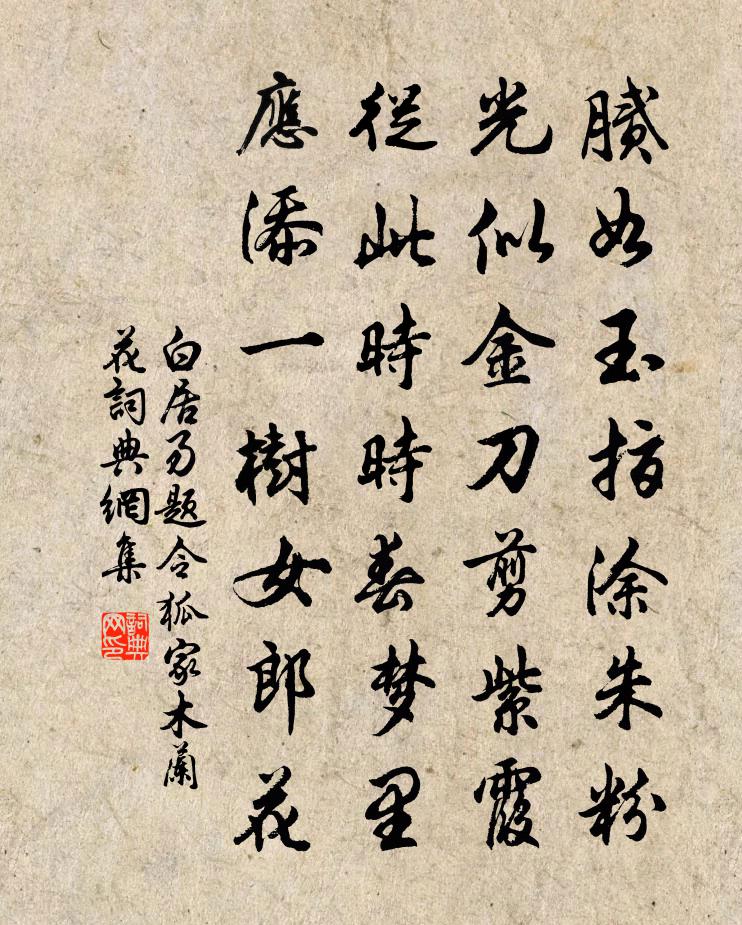 膩如玉指涂朱粉
光似金刀剪紫霞
從此時時春梦里
應添一樹女郎花
白居易題令狐家木蘭
花詞典網集
詞典
网印